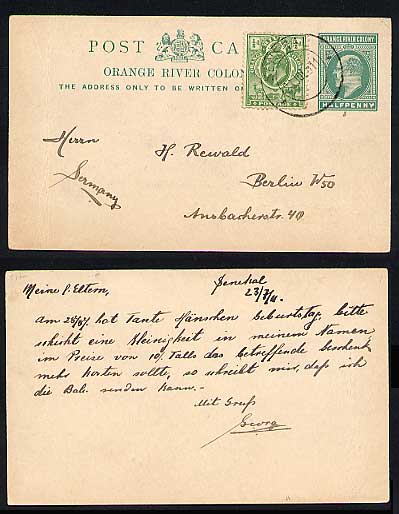 POST CA
ORANGE RIVER COLON
THE ADDRESS ONLY TO BE WRITTEN ON
ORANGE RIVER COLONY
HALFPENNY
½d ½d
POSTAGE
Herrn H. Rewald
Germany
Berlin W50
Ansbacherstr. 40
Meine l. Eltern,
Senekal
23/7/11.
Am 28/8/ hat Tante Hänschen Geburtstag, bitte
schickt eine Kleinigkeit in meinem Namen
im Preise von 10/. Falls das betreffende Geschenk
mehr kosten sollte, so schreibt mir, daß ich
die Bal. senden kann.-
Mit Gruß
Georg